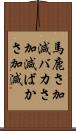 馬鹿さ加
減バカさ
加減ばか
さ加減